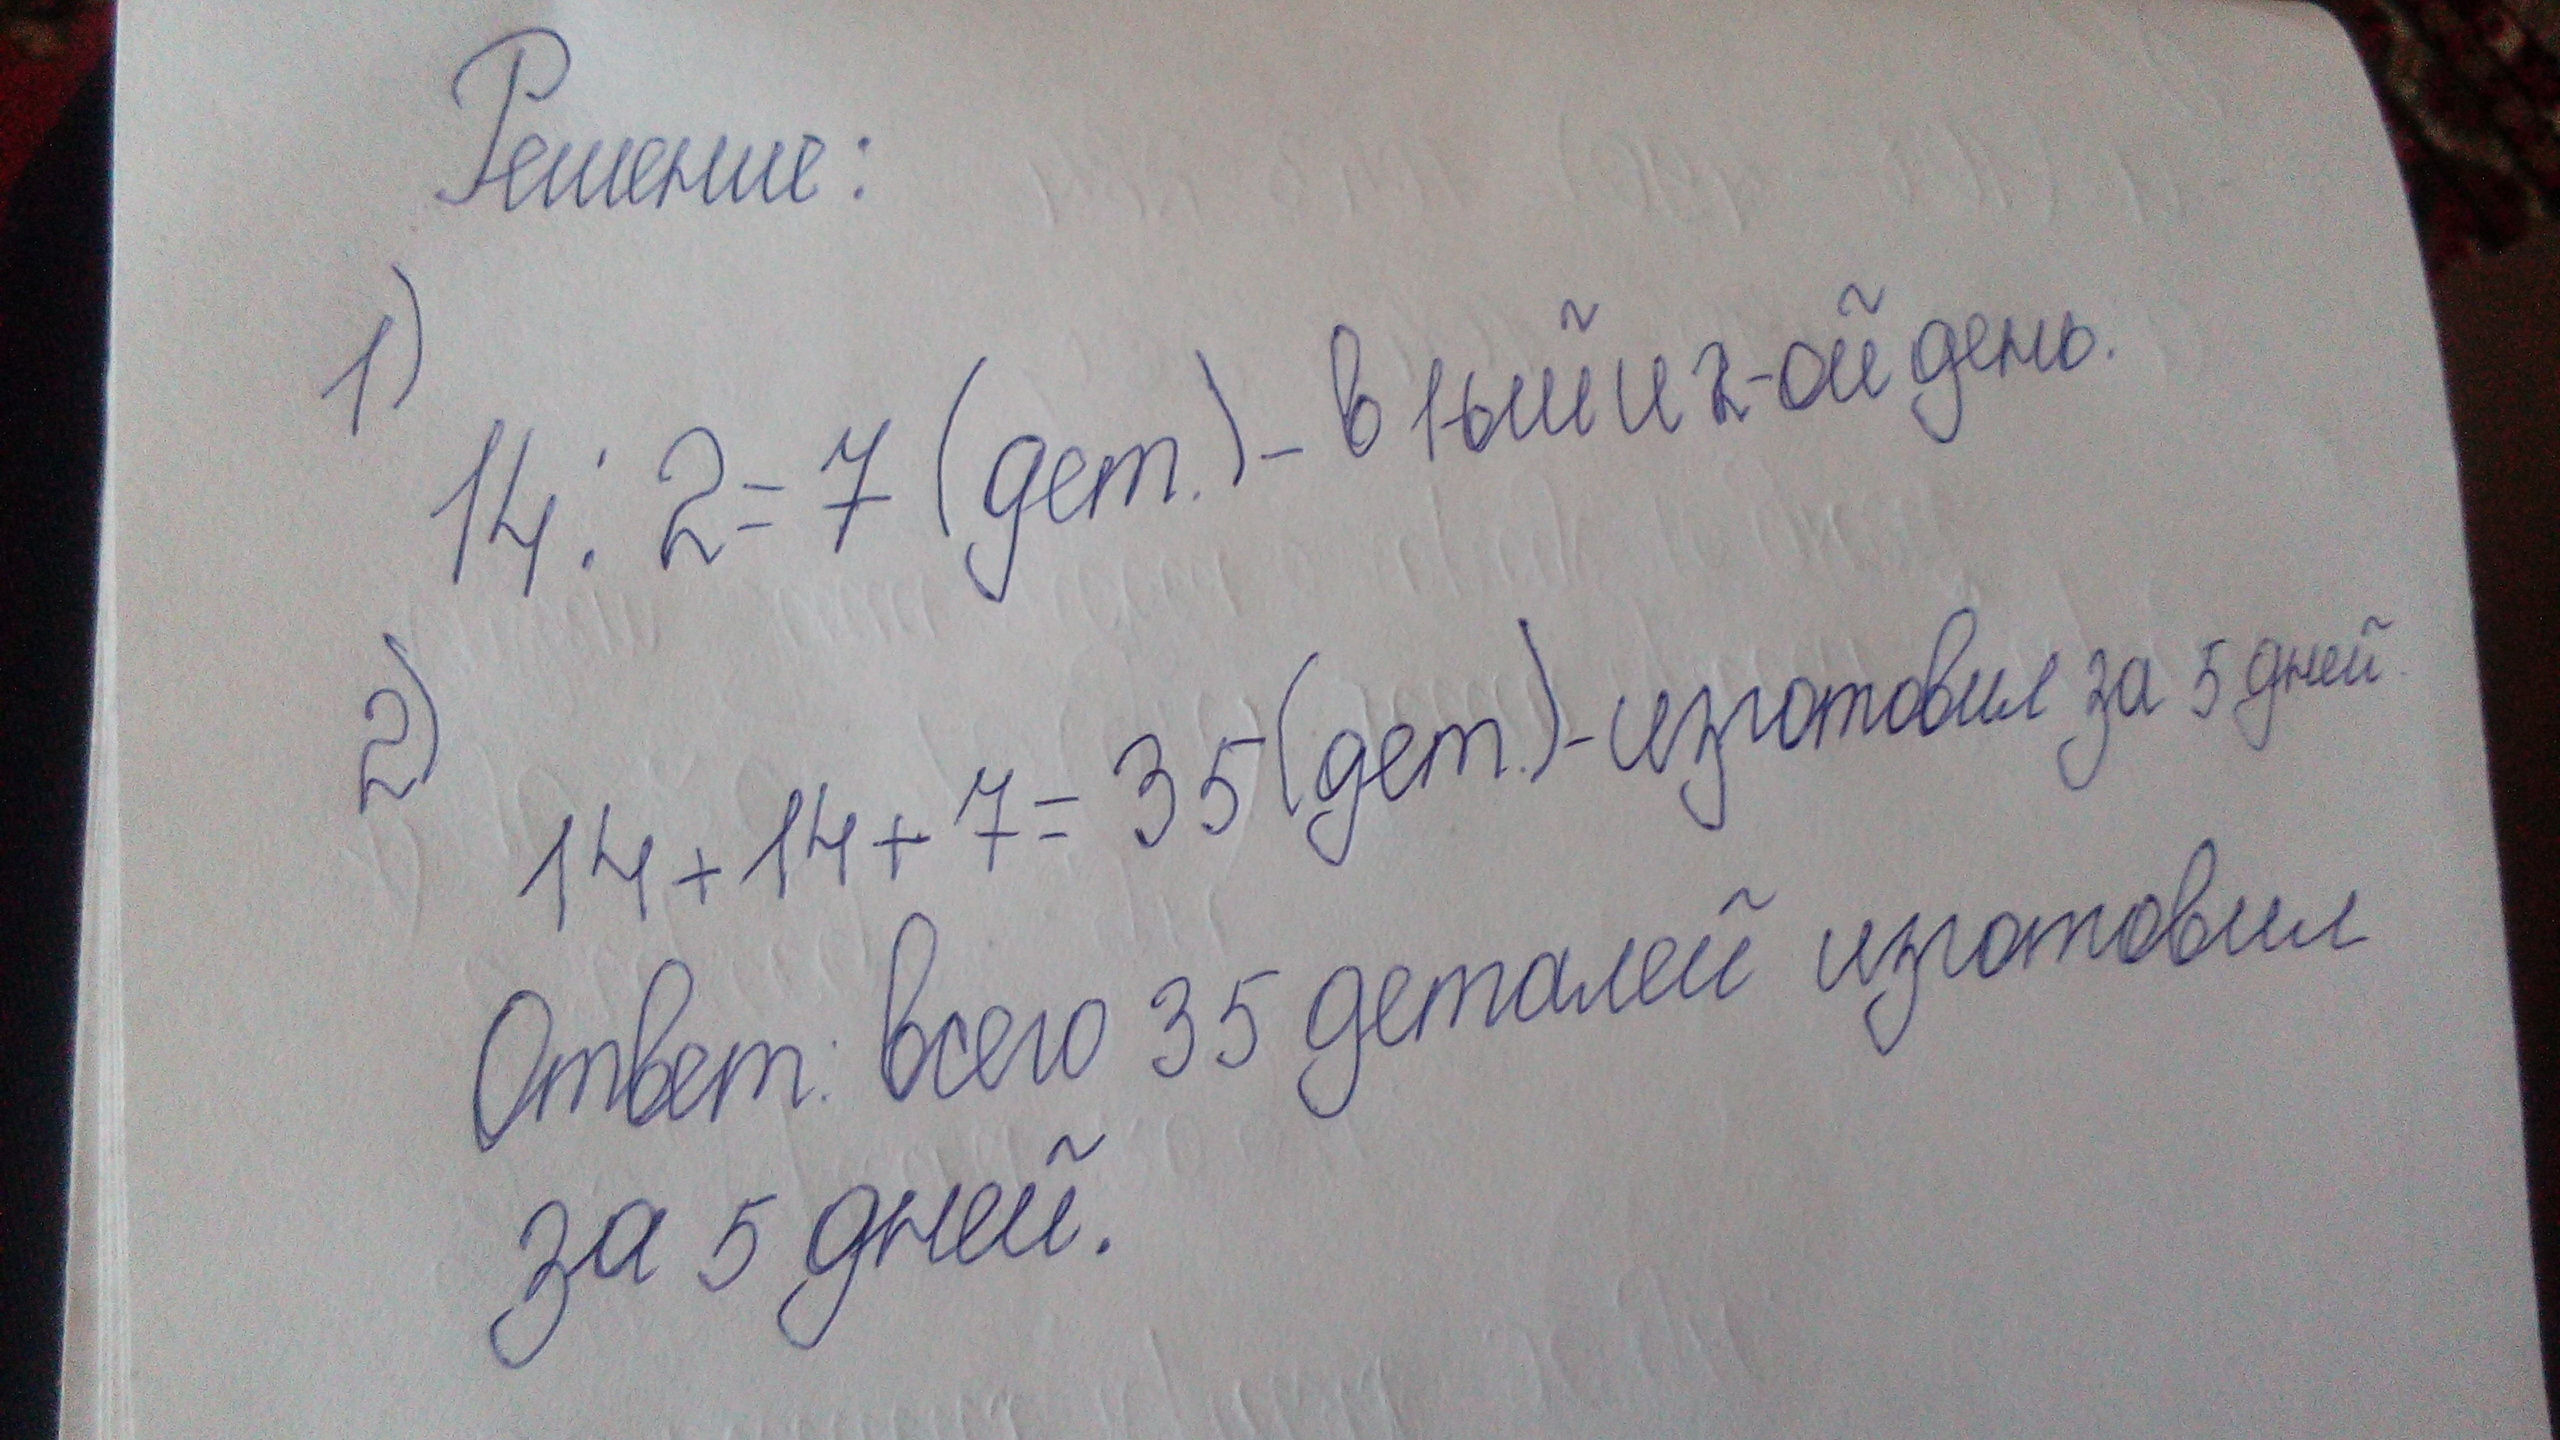 Решение:
1)
14:2=7 (дет.)- в 1-ый и 2-ой день.
2)
14+14+7=35(дет.)-изготовил за 5 дней
Ответ: всего 35 деталей изготовил
за 5 дней.